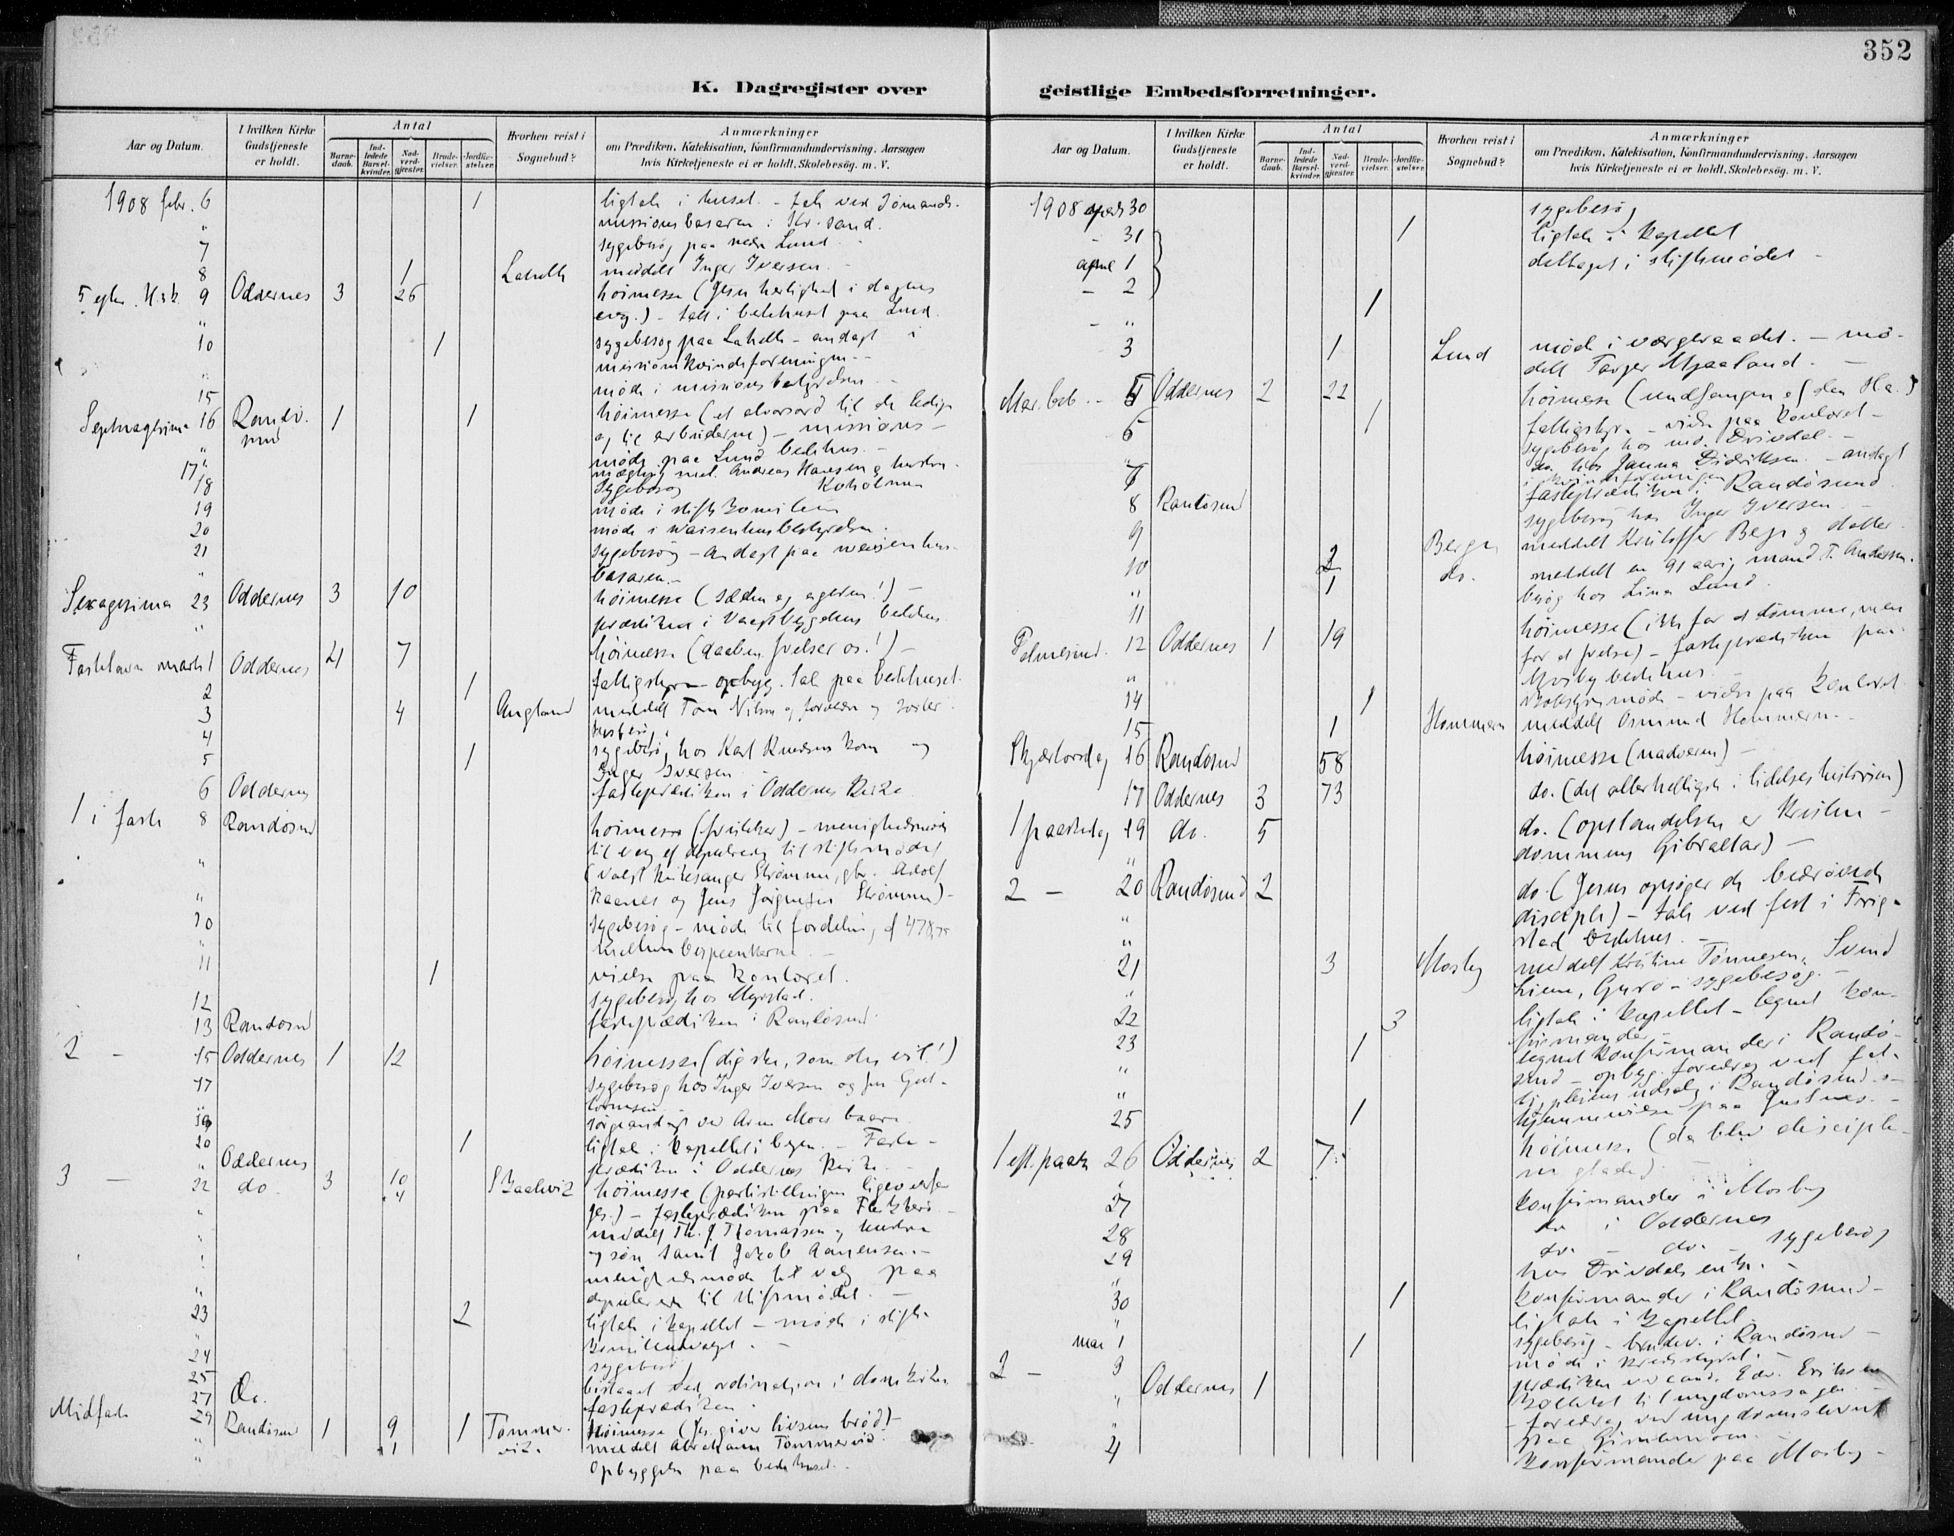 352
K. Dagregister over
geistlige Embedsforretninger.
Aar og Datum.
I hvilken Kirke Gudstjeneste er holdt.
Antal
Barne-daab.
Ind-ledede Barsel-kvinder.
Nad-verd-gjæster.
Brude-vielser.
Jordfæ-stelser.
Hvorhen reist i Sognebud?
Anmærkninger
om Prædiken, Katekisation, Konfirmandundervisning, Aarsagen
hvis Kirketjeneste ei er holdt, Skolebesøg, m. V.
1908 febr. 6 1 ligtale i huset. - tale ved Sømands-
" missionsbasaren i Kr.sand.
7 sygebesøg paa nedre Lund.
8 1 Lahelle meddelt Inger Iversen.
9 Oddernes 3 26 høimesse (Jesu herlighed i dagens
" evg.) - tale i bedehuset paa Lund.
10 1 sygebesøg paa Lahelle - andagt i
" missionskvindeforeningen.
15 møde i missionsbestyrelsen.
Septuagesima 16 Randø-sund 1 1 høimesse (et alvorsord til de ledige
" og til arbeiderne) - missions-
møde paa Lund bedehus.
17 mægling mel. Andreas Hansen og hustru
18 sygebesøg Kuholmen
19 møde i stiftskomiteen
20 møde i waisenhusbestyrelsen.
21 sygebesøg - andagt paa waisenhus-
" basaren.
Sexagesima 23 Oddernes 3 10 høimesse (sæden og ageren!) -
" prædiken i Vaagsbygdens bedehus
Fastelavn marts 1 Oddernes 4 7 høimesse (daaben frelser os!) -
fattigstyre opbyg. tale paa bedehuset.
2 1
3 4 Augland meddelt Tom Nilsen og forældre og søster.
4
5 1 sygebesøg hos Karl Knudsens kone og
Inger Iversen
6 Oddernes fasteprædiken i Oddernes kirke.
1 i faste 8 Randøsund høimesse (fristelser) - menighedsmøde
til valg af deputerede til stiftsmødet
" (valgt kirkesanger Strømme, gbr. Adolf
" Kaanes og Jens Jørgensen Strømme) -
10 sygebesøg - møde til fordeling af 478,75
" mellem
11 1 vielse paa kontoret.
12 sygebesøg hos Myrstad.
13 Randøsund fasteprædiken i Randøsund.
2 - 15 Oddernes 1 12 høimesse (dig ske, som du vil!)
17 sygebesøg hos Inger Iversen og fru Gut-
" tormsen
19 sørgeandagt ved Arne Moes baare
20 1 ligtale i kapellet i byen. - Faste-
" Oddernes prædiken i Oddernes kirke.
3 - 22 do. 3 10 Skaalevik høimesse (partistillingen ligeoverfor
" 4 Jes.) - fasteprædiken paa Flekkerø. -
meddelt Th. J. Thomassen og hustru
og søn samt Jakob Aanensen. -
menighedsmøde til valg paa
deputerede til stiftsmødet. -
23 2 ligtale i kapellet - møde i stifts-
" komiteudvalget. -
24 sygebesøg
25 bistaaet ved ordination i domkirken
27 Do. fasteprædiken.
Midfaste 29 Randøsund 1 9 1 Tømmer-vik. Høimesse (Jes. giver livsens brød) -
" 1 meddelt Abraham Tømmervik.
" Opbyggelse paa bedehuset.
Aar og Datum.
I hvilken Kirke Gudstjeneste er holdt.
Antal
Barne-daab.
Ind-ledede Barsel-kvinder.
Nad-verd-gjæster.
Brude-vielser.
Jordfæ-stelser.
Hvorhen reist i Sognebud?
Anmærkninger
om Prædiken, Katekisation, Konfirmandundervisning, Aarsagen
hvis Kirketjeneste ei er holdt, Skolebesøg, m. V.
1908 30 sygebesøg
- 31 1 ligtale i kapellet
april 1 deltaget i stiftsmødet -
- 2 1
- "
3 1 Lund møde i værgeraadet. - med-
delt Targer Mjaaland. -
Mar. beb. - 5 Oddernes 2 22 høimesse (undfangen af den Hel.)
6 1 fattigstyre - vielse paa kontoret -
sygebesøg hos Drivdal. -
" do. hos Janna Didriksen. - andagt
7 i kvindeforeningen
8 Randøsund fasteprædiken i Randøsund.
9 sygebesøg hos Inger Iversen -
10 2 Berge meddelt Kristoffer Berge og datter.
" 1 do. meddelt en 91 aarig mand T. Andersen.
11 besøg hos Lina Lund.
Palmesønd. 12 Oddernes 1 19 høimesse (ikke for at dømme, men
" for at frelse) - fasteprædiken paa
bedehus. -
14 1 skolestyremøde - vielse paa kontoret.
15 1 Hommeren meddelt Osmund Hommeren. -
Skjærtorsdag 16 Randøsund 58 høimesse (nadveren) -
17 Oddernes 3 73 do. (det allerhelligste i lidelseshistorien)
1 paaskedag 19 do. 5 do. (opstandelsen er kristen-
" dommens Gibraltar) -
2 - 20 Randøsund 2 do. (Jesus opsøger de bedrøvede
" disciple) - tale ved fest i Torrig-
" stad bedehus. -
21 3 Mosby meddelt Kristine Tønnesen, Svend
" Lien, Guro - sygebesøg. -
22 3 ligtale i kapellet - tegnet kon-
firmander
23 1 tegnet konfirmander i Randø-
" sund - opbyg. foredrag ved fat-
" tigpleiens udsalg i Randøsund. -
25 1 hjemmevielse paa Justnes. -
1 eft. paaske 26 Oddernes 2 7 høimesse (da blev disciple-
" ne glade) -
27 konfirmander i Mosby
28 do. i Oddernes
29 do. - do. sygebesøg
" hos Drivdals enke. -
30 1 konfirmander i Randøsund -
" ligtale i kapellet.
mai 1 1 sygebesøg - brudev. i Randøsund -
møde i kredsstyret. -
2 - 3 Oddernes 1 prædiken ved cand. Edv. Eriksen
" kollekt til ungdomssagen. -
" - foredrag ved ungdomsstevnet
paa Gimlemoen. -
4 konfirmander paa Mosby -